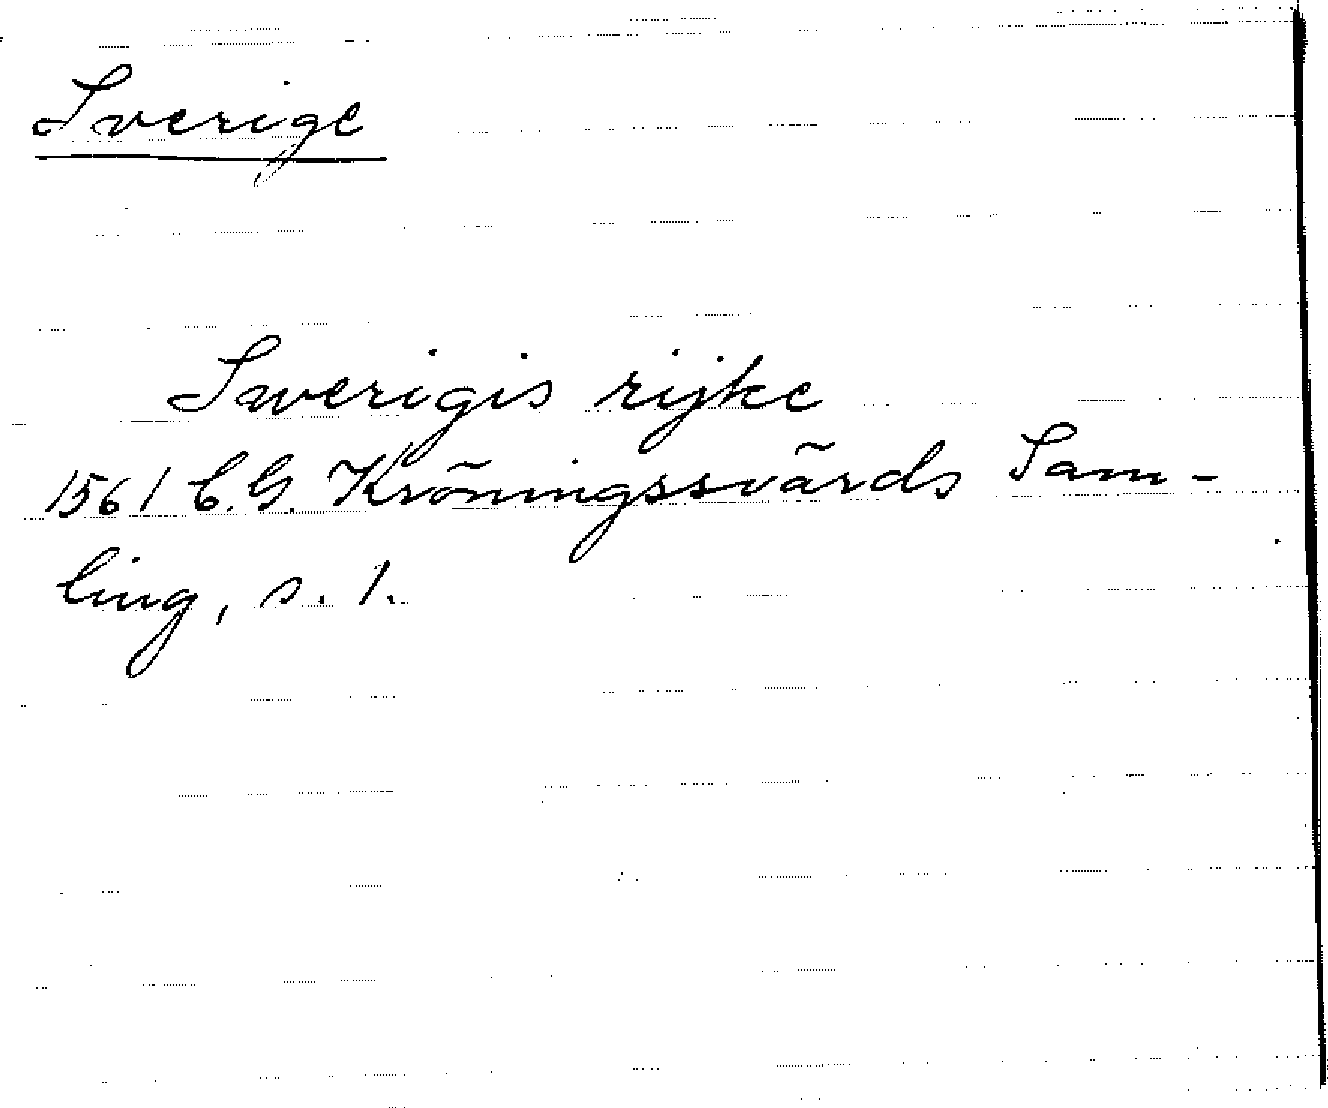 Sverige
Swerigis rijke
1561 C.G. Kröningssvärds Sam-
ling, s. 1.